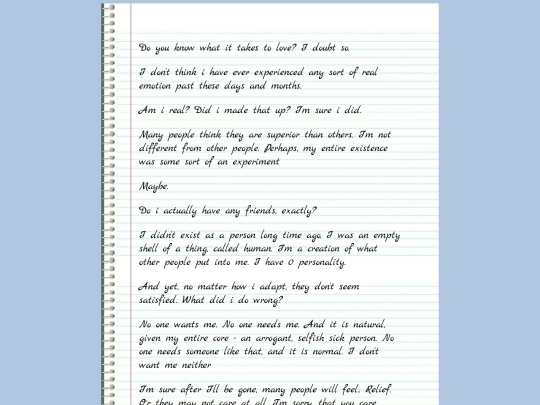 Do you know what it takes to love? I doubt so.
I don't think i have ever experienced any sort of real
emotion past these days and months.
Am i real? Did i made that up? I'm sure i did.
Many people think they are superior than others. I'm not
different from other people. Perhaps, my entire existence
was some sort of an experiment
Maybe.
Do i actually have any friends, exactly?
I didn't exist as a person long time ago. I was an empty
shell of a thing, called human. I'm a creation of what
other people put into me. I have 0 personality.
And yet, no matter how i adapt, they don't seem
satisfied. What did i do wrong?
No one wants me. No one needs me. And it is natural,
given my entire core - an arrogant, selfish sick person. No
one needs someone like that, and it is normal. I don't
want me neither
I'm sure after I'll be gone, many people will feel.. Relief.
Or they may not care at all. I'm sorry that you care